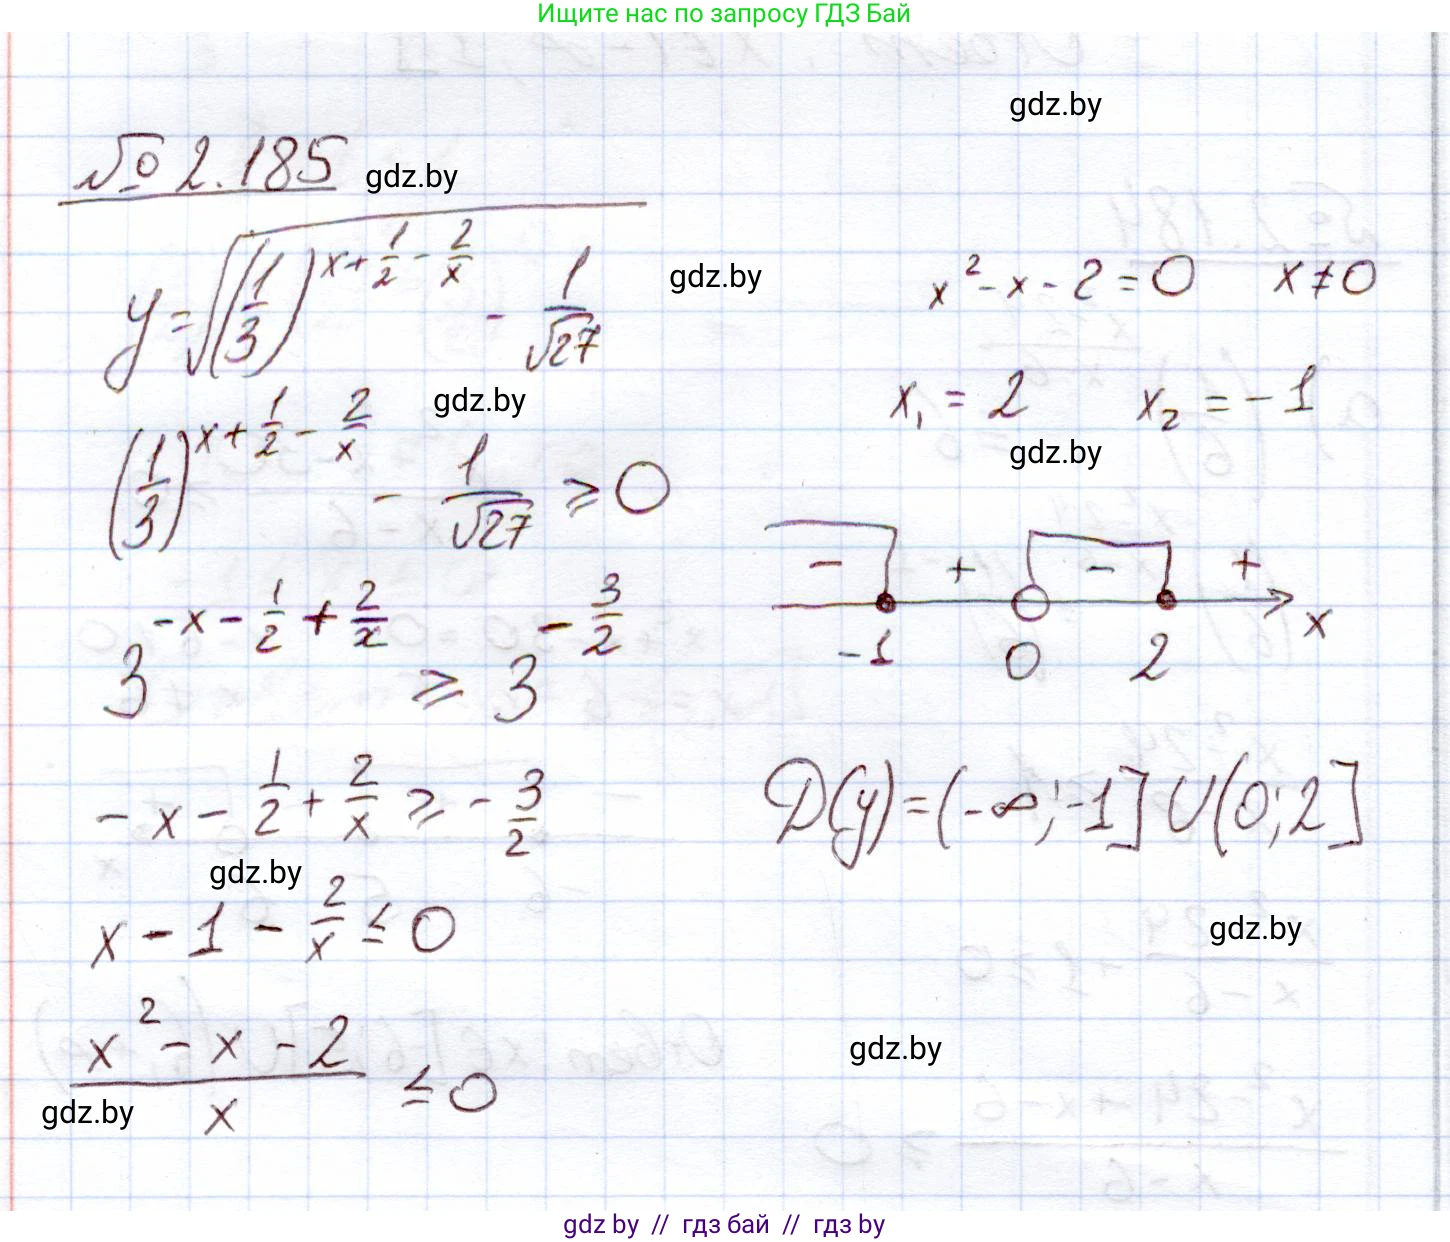 Ищите нас по запросу ГДЗ Бай
gdz.by
№ 2.185 gdz.by
y = √((1/3)^(x + 1/2 - 2/x) - 1/√27)
gdz.by
(1/3)^(x + 1/2 - 2/x) - 1/√27 ⩾ 0
gdz.by
3^(-x - 1/2 + 2/x) ⩾ 3^(-3/2)
-x - 1/2 + 2/x ⩾ -3/2
gdz.by
x - 1 - 2/x ≤ 0
(x² - x - 2)/x ≤ 0
gdz.by
x² - x - 2 = 0 x ≠ 0
x₁ = 2 x₂ = -1
gdz.by
- + - +
-1 0 2 x
D(y) = (-∞; -1] ∪ (0; 2]
gdz.by
gdz.by
gdz by // гдз бай // гдз by